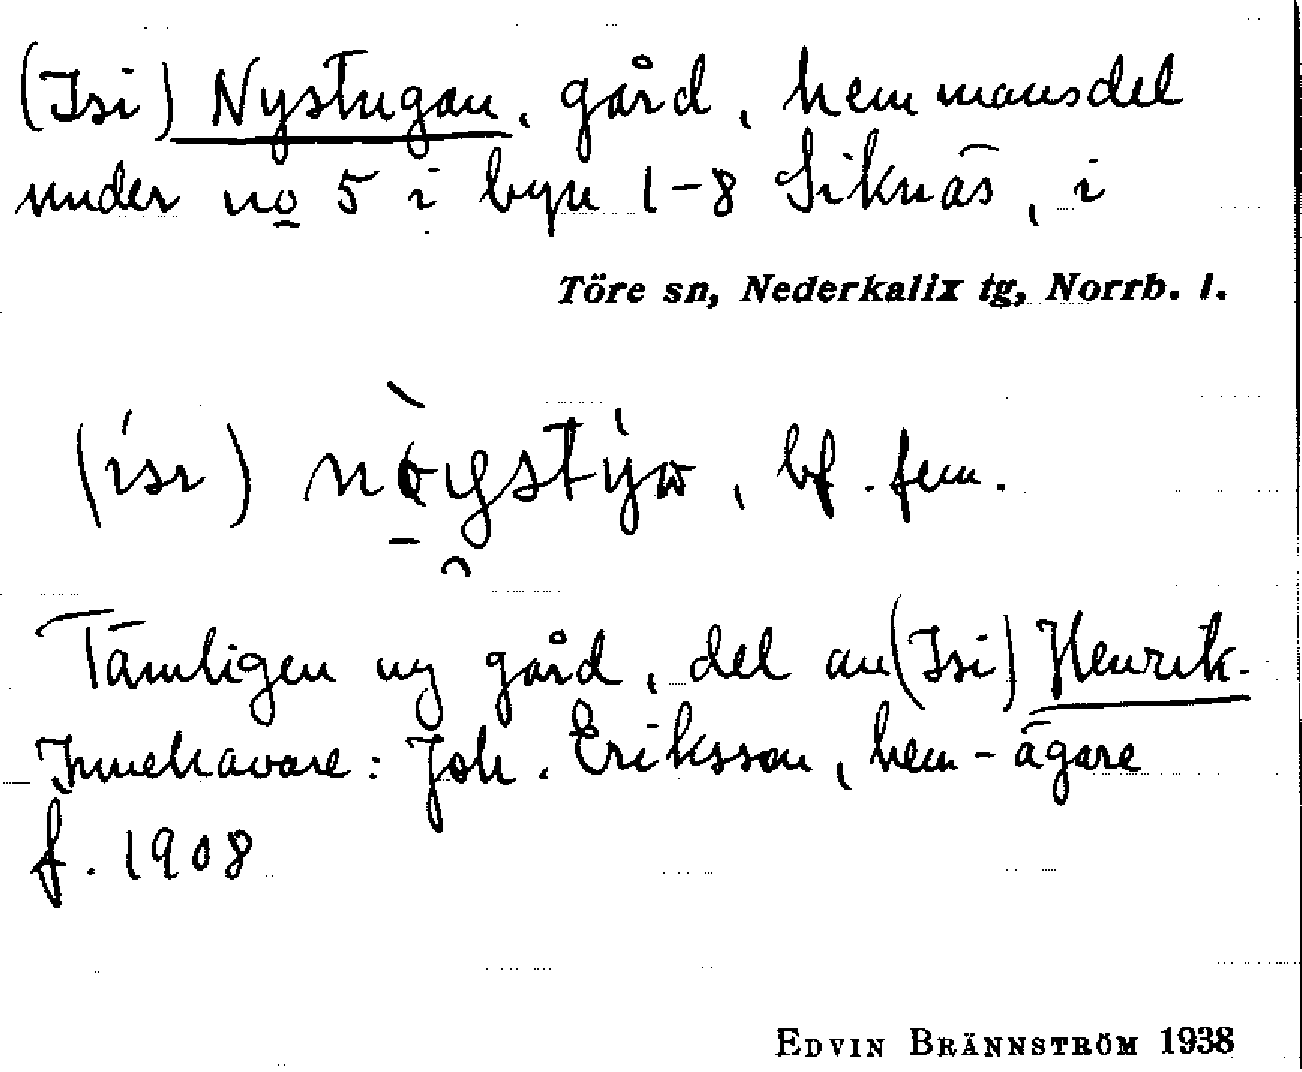 (Isi) Nystugan, gård, hemmansdel
under no 5 i byn 1-8 Siknäs, i
Töre sn, Nederkalix tg, Norrb. l.
bf. fem.
Tämligen ny gård, del av (Isi) Henrik.
Innehavare: Joh. Eriksson, hem-ägare
f. 1908
EDVIN BRÄNNSTRÖM 1938